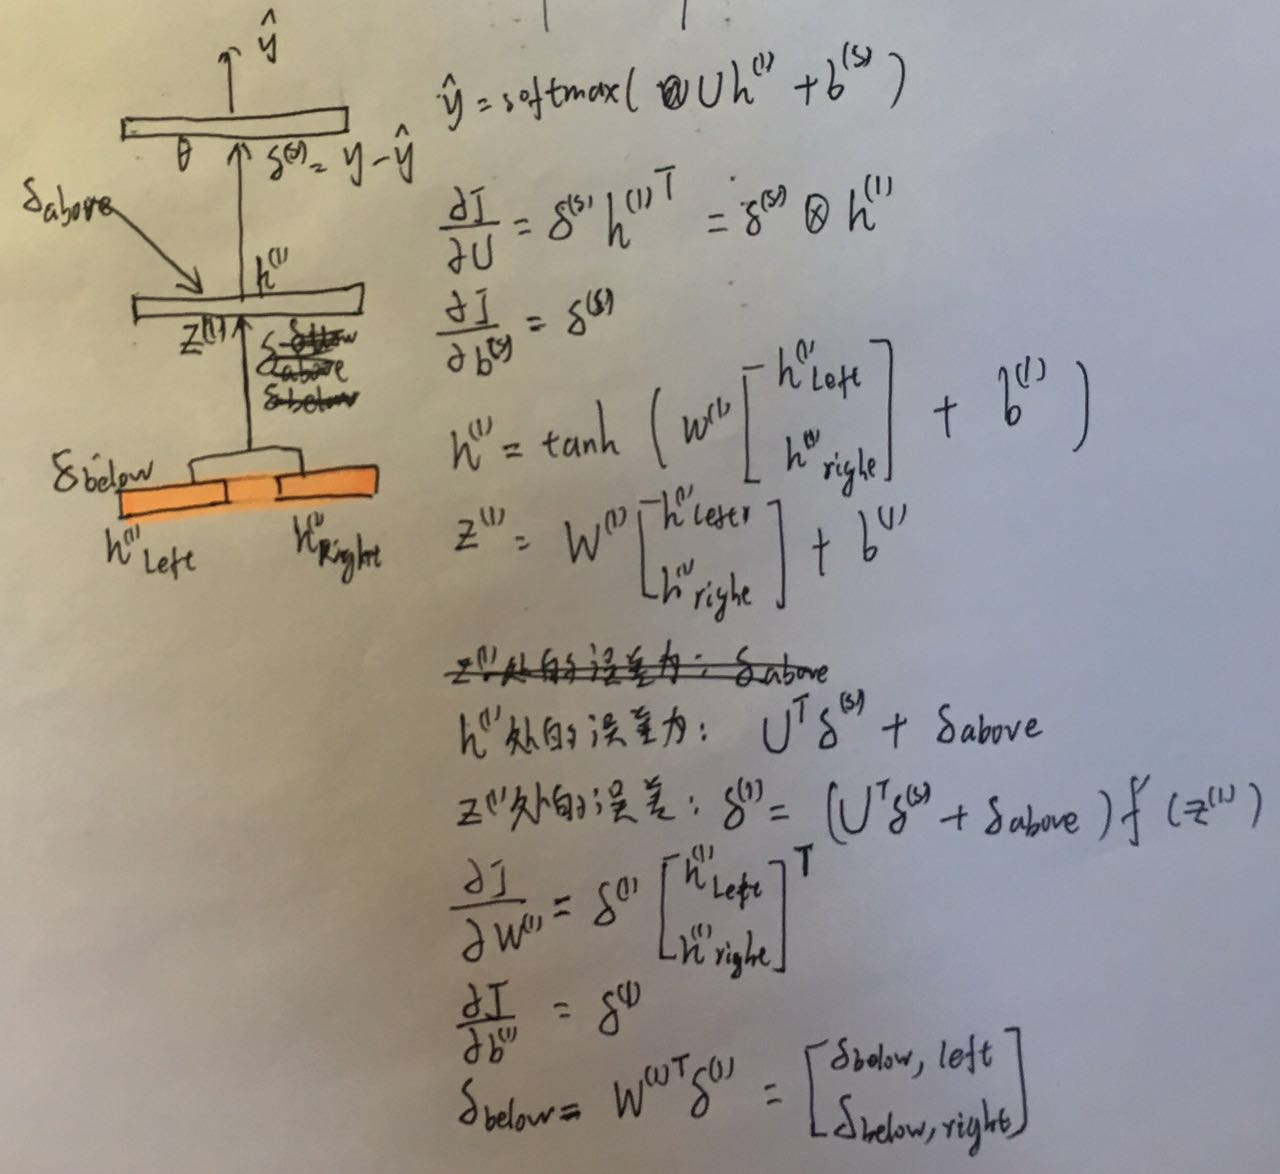 ŷ
θ δ^(s) = y - ŷ
δabove
h^(1)
z^(1)
δbelow
h^(1) Left
h^(1) Right
ŷ = softmax( U h^(1) + b^(s) )
∂J/∂U = δ^(s) h^(1)T = δ^(s) ⊗ h^(1)
∂J/∂b^(s) = δ^(s)
h^(1) = tanh ( W^(1) [ h^(1) Left h^(1) righe ] + b^(1) )
z^(1) = W^(1) [ h^(1) Left h^(1) righe ] + b^(1)
z^(1)处的误差为: δabove
h^(1)处的误差为: U^T δ^(s) + δabove
z^(1)处的误差: δ^(1) = (U^T δ^(s) + δabove) f'(z^(1))
∂J/∂W^(1) = δ^(1) [ h^(1) Left h^(1) righe ]^T
∂J/∂b^(1) = δ^(1)
δbelow = W^(1)T δ^(1) = [ δbelow, left δbelow, right ]